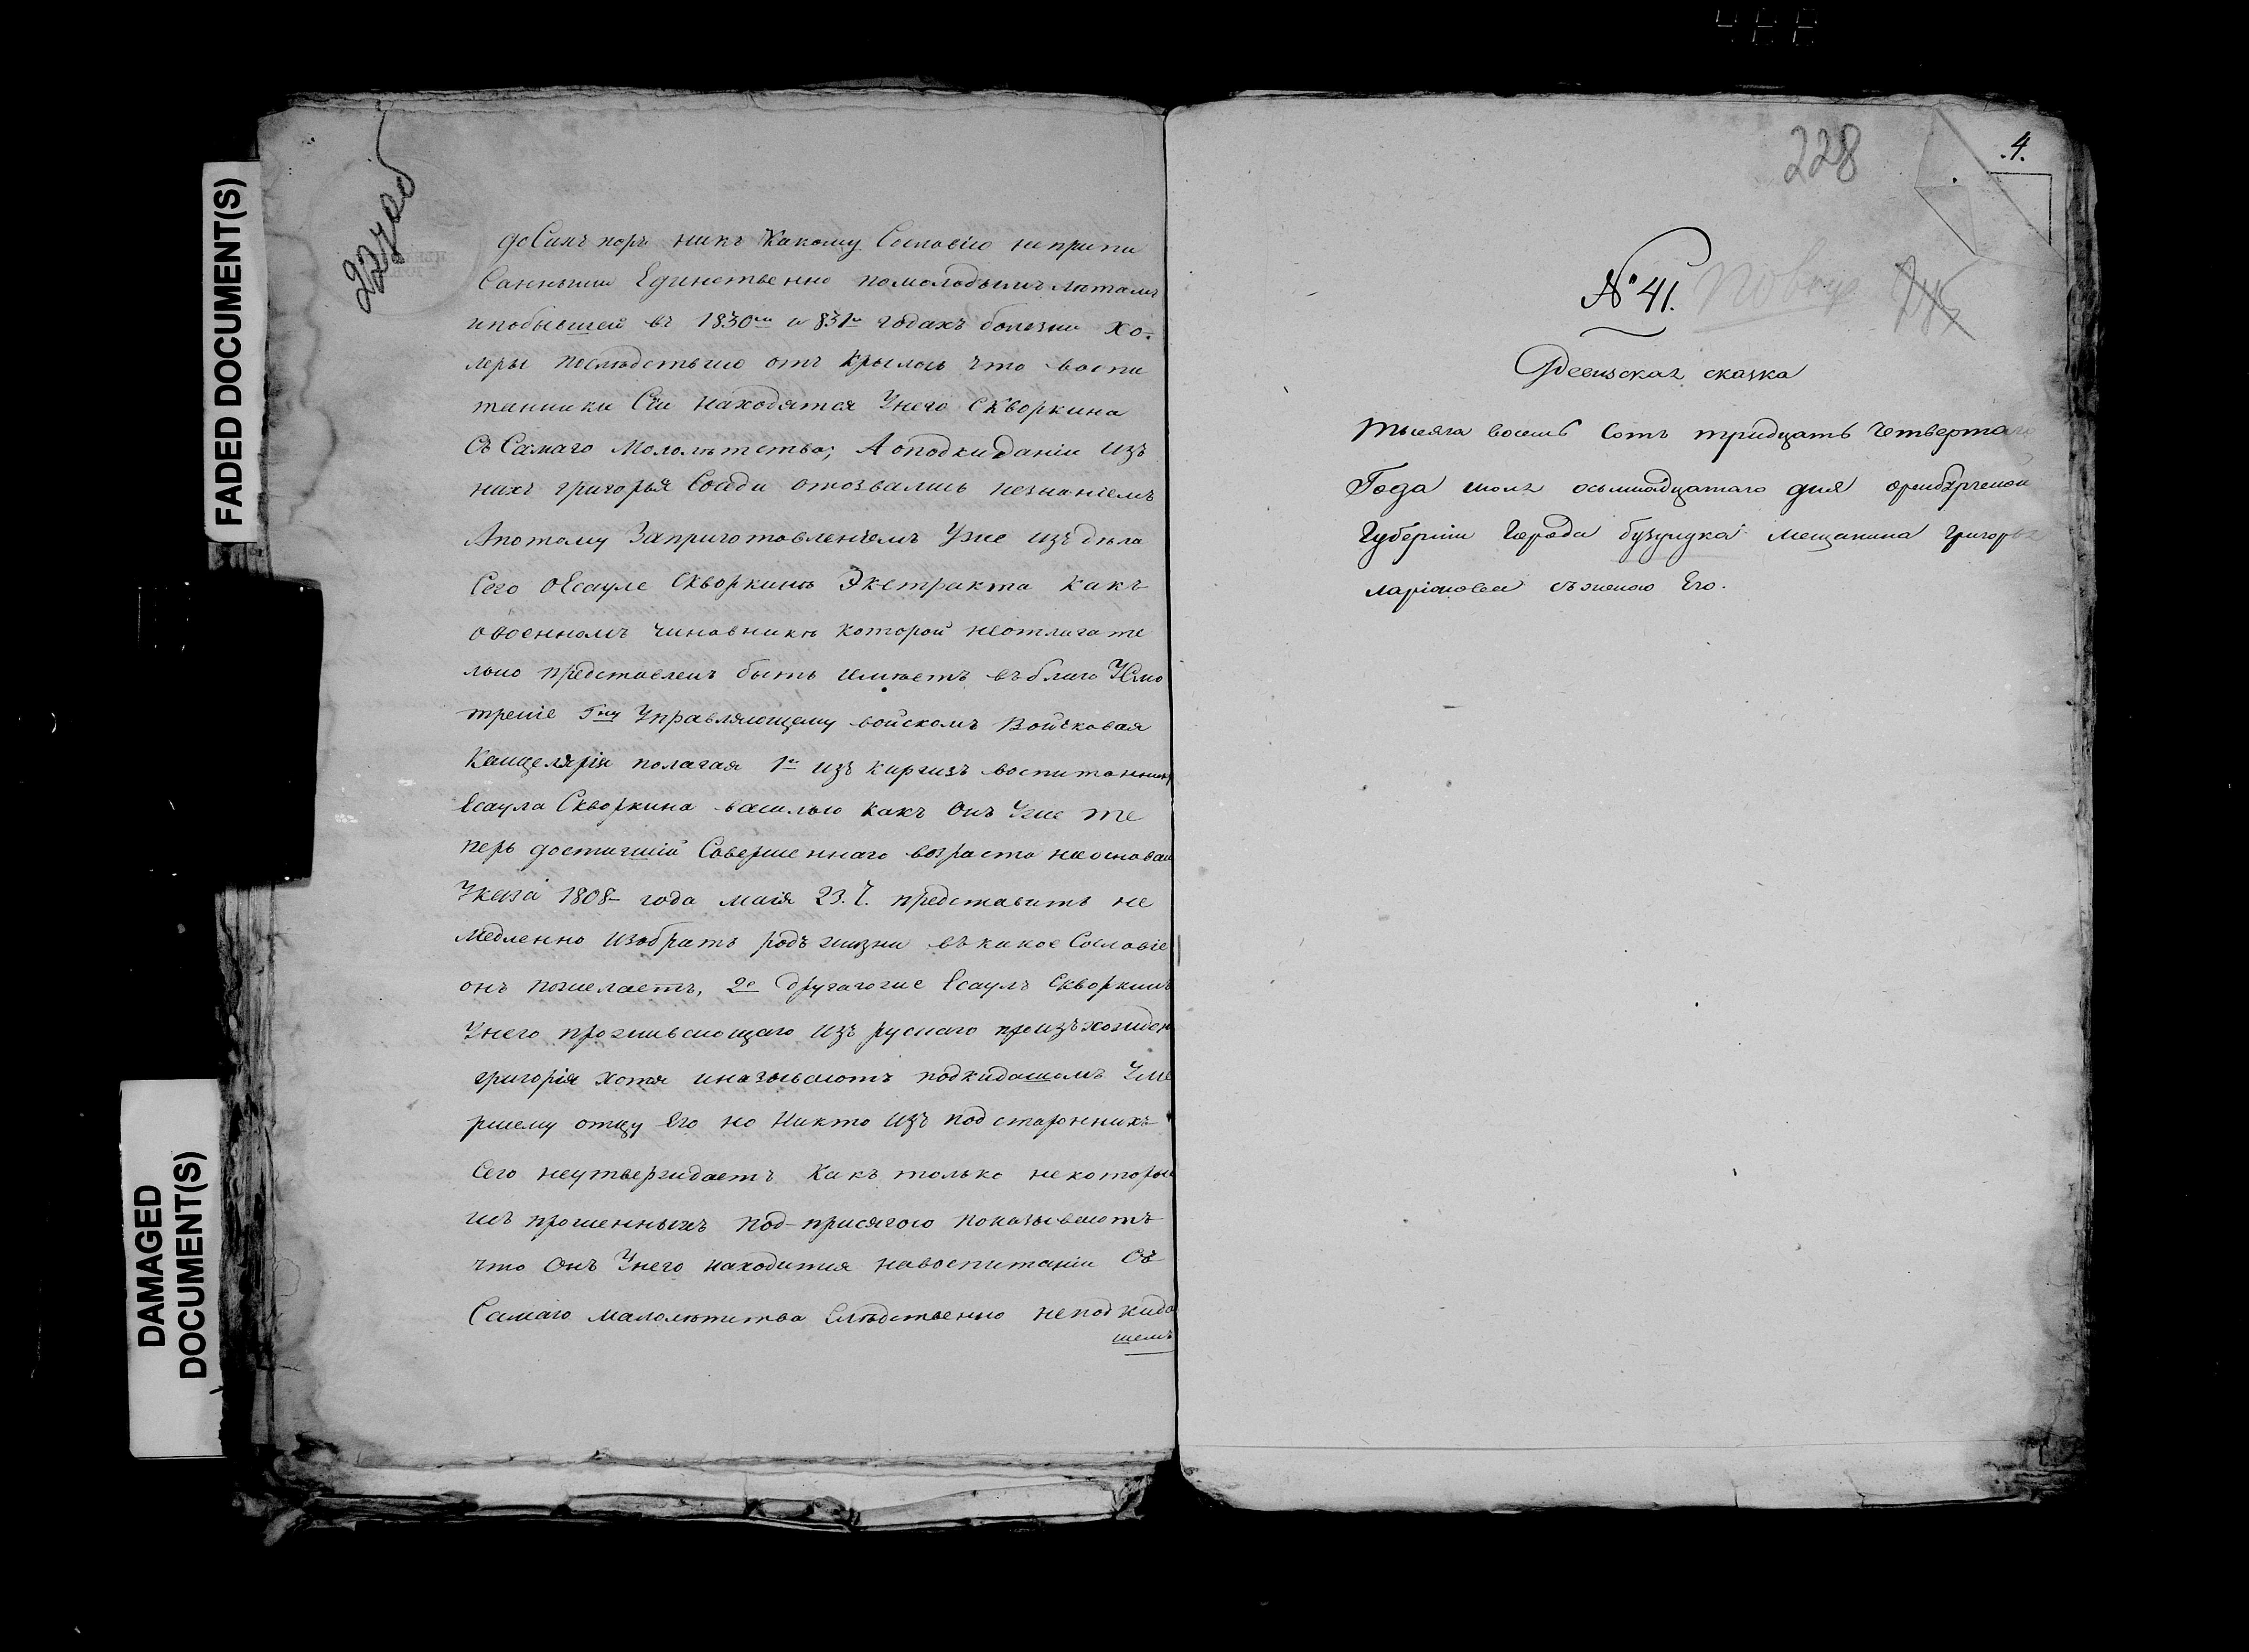 FADED DOCUMENT(S)
DAMAGED
DOCUMENT(S)
227 об
до Сихъ поръ никъ Какому Сословію неприпи
Санными Единственно помолодымъ лѣтамъ
ипобывшей въ 1830мъ и 831м годахъ болезни хо-
леры послѣдствію открылось что воспи
танники Сіи находятся Унего Скворкина
Съ Самаго Малолѣтства; Аоподкиданіи изъ
нихъ григорья Соседи отозвались незнаніемъ
Апотому Заприготовленіемъ Уже изъ дѣла
Сего оЕсауле Скворкинѣ Экстракта какъ
овоенномъ чиновникѣ которой неотлагате
льно представленъ быть имѣетъ въ благо Усмо
треніе Гну Управляющему войскомъ Войсковая
Канцелярія полагая 1е изъ киргизъ воспитанник
Есаула Скворкина василью какъ Онъ Уже те
перь достигшій Совершеннаго возраста наоснован
Указа 1808 года маія 23. Ч. представить не
медленно избрать родъ жизни въ какое Сословіе
онъ пожелаетъ, 2е другагоже Есаулъ Скворкинъ
Унего проживающаго изъ рускаго произъхожден
григорія хотя иназываютъ подкидашемъ Уме
ршему отцу Его но Никто изъ подстароннихъ
Сего неутверждаетъ Какъ только некоторы
изъ прошенныхъ под присягою показываютъ
что Онъ Унего находится навоспитаніи Съ
Самаго малолѣтства Слѣдственно неподкида
шемъ
228
.4.
№ 41.
Ревизская сказка
Тысяча восемь Сотъ тридцать Четвертаго
Года июля осьмнадцатаго дня оренбургской
Губерніи Города бузулука мещанина Григорья
ларіонова съ женою Его.